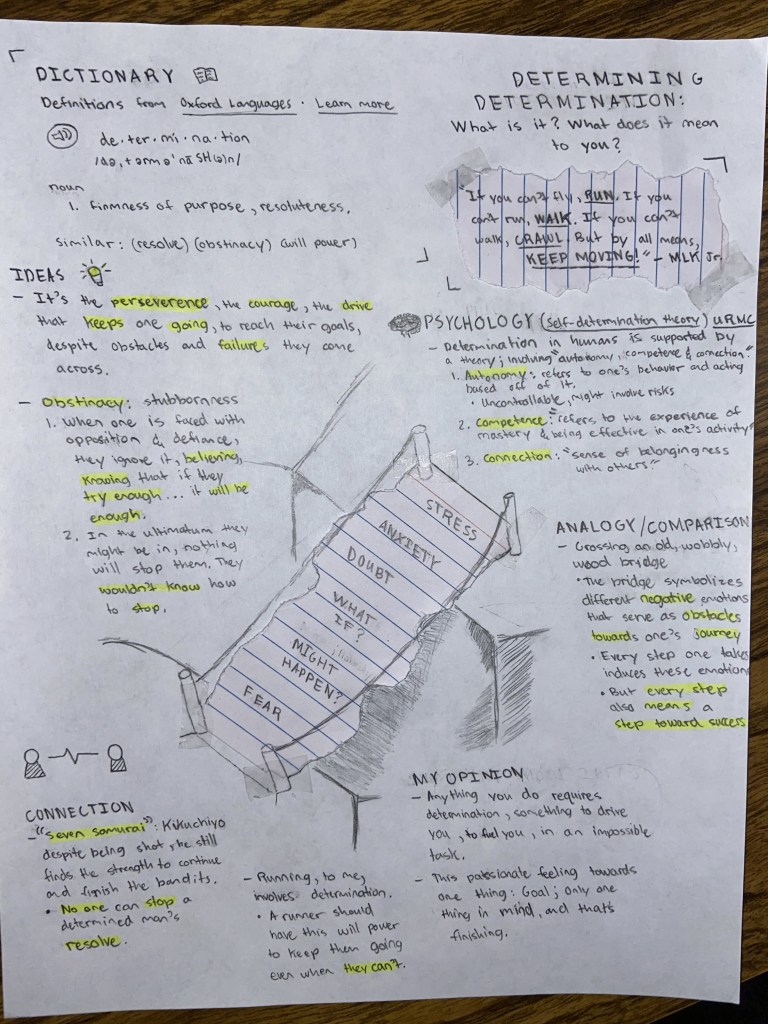 DICTIONARY
Definitions from Oxford Languages · Learn more
de·ter·mi·na·tion
/də,tərmə'nāSH(ə)n/
noun
1. firmness of purpose, resoluteness.
similar: (resolve) (obstinacy) (will power)
DETERMINING
DETERMINATION:
What is it? What does it mean
to you?
"If you can't fly, RUN. If you
can't run, WALK. If you can't
walk, CRAWL. But by all means,
KEEP MOVING!" - MLK Jr.
IDEAS
- It's the perseverence, the courage, the drive
that keeps one going, to reach their goals,
despite obstacles and failures they come
across.
- Obstinacy: stubbornness
1. When one is faced with
opposition & defiance,
they ignore it, believing,
knowing that if they
try enough... it will be
enough.
2. In the ultimatum they
might be in, nothing
will stop them. They
wouldn't know how
to stop.
PSYCHOLOGY (self-determination theory) URMC
- Determination in humans is supported by
a theory; involving "autonomy, competence & connection."
1. Autonomy: refers to one's behavior and acting
based off of it.
• Uncontrollable, might involve risks
2. Competence: "refers to the experience of
mastery & being effective in one's activity"
3. Connection: "sense of belongingness
with others"
STRESS
ANXIETY
DOUBT
WHAT
IF?
MIGHT
HAPPEN?
FEAR
ANALOGY/COMPARISON
- Crossing an old, wobbly,
wood bridge
• The bridge symbolizes
different negative emotions
that serve as obstacles
towards one's journey
• Every step one takes
induces these emotion
• But every step
also means a
step toward success
CONNECTION
- "Seven Samurai": Kikuchiyo
despite being shot, he still
finds the strength to continue
and finish the bandits.
• No one can stop a
determined man's
resolve.
- Running, to me,
involves determination.
• A runner should
have this will power
to keep them going
even when they can't.
MY OPINION
- Anything you do requires
determination, something to drive
you, to fuel you, in an impossible
task.
- This passionate feeling towards
one thing: Goal; only one
thing in mind, and that's
finishing.